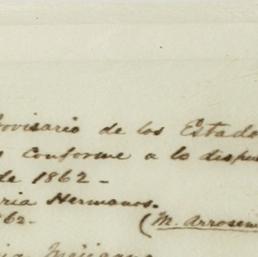 ovisario de los Estado
conforme a lo dispu
de 1862 -
ria Hermanos.
62- (M. Arrosem
ia Mejicana